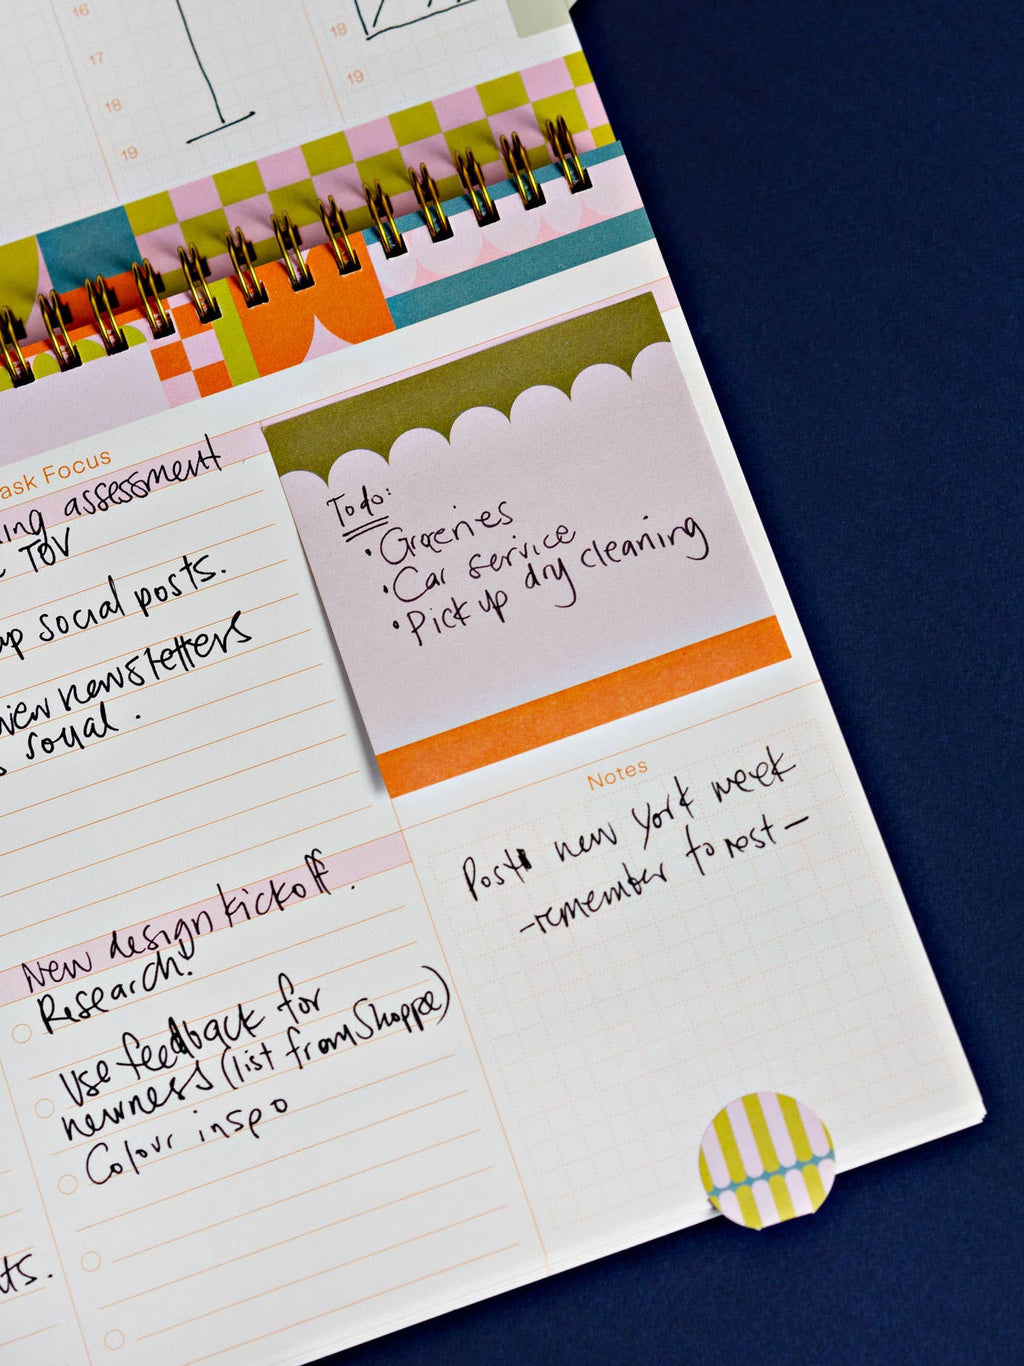 16
17
18
19
18
19
ask Focus
ing assessment
TOV
up social posts.
view newsletters
social.
Todo:
• Groceries
• Car service
• Pick up dry cleaning
Notes
Post new York week
- remember to rest -
New design kickoff.
Research.
Use feedback for
newness (list from Shoppe)
Colour inspo
ts.